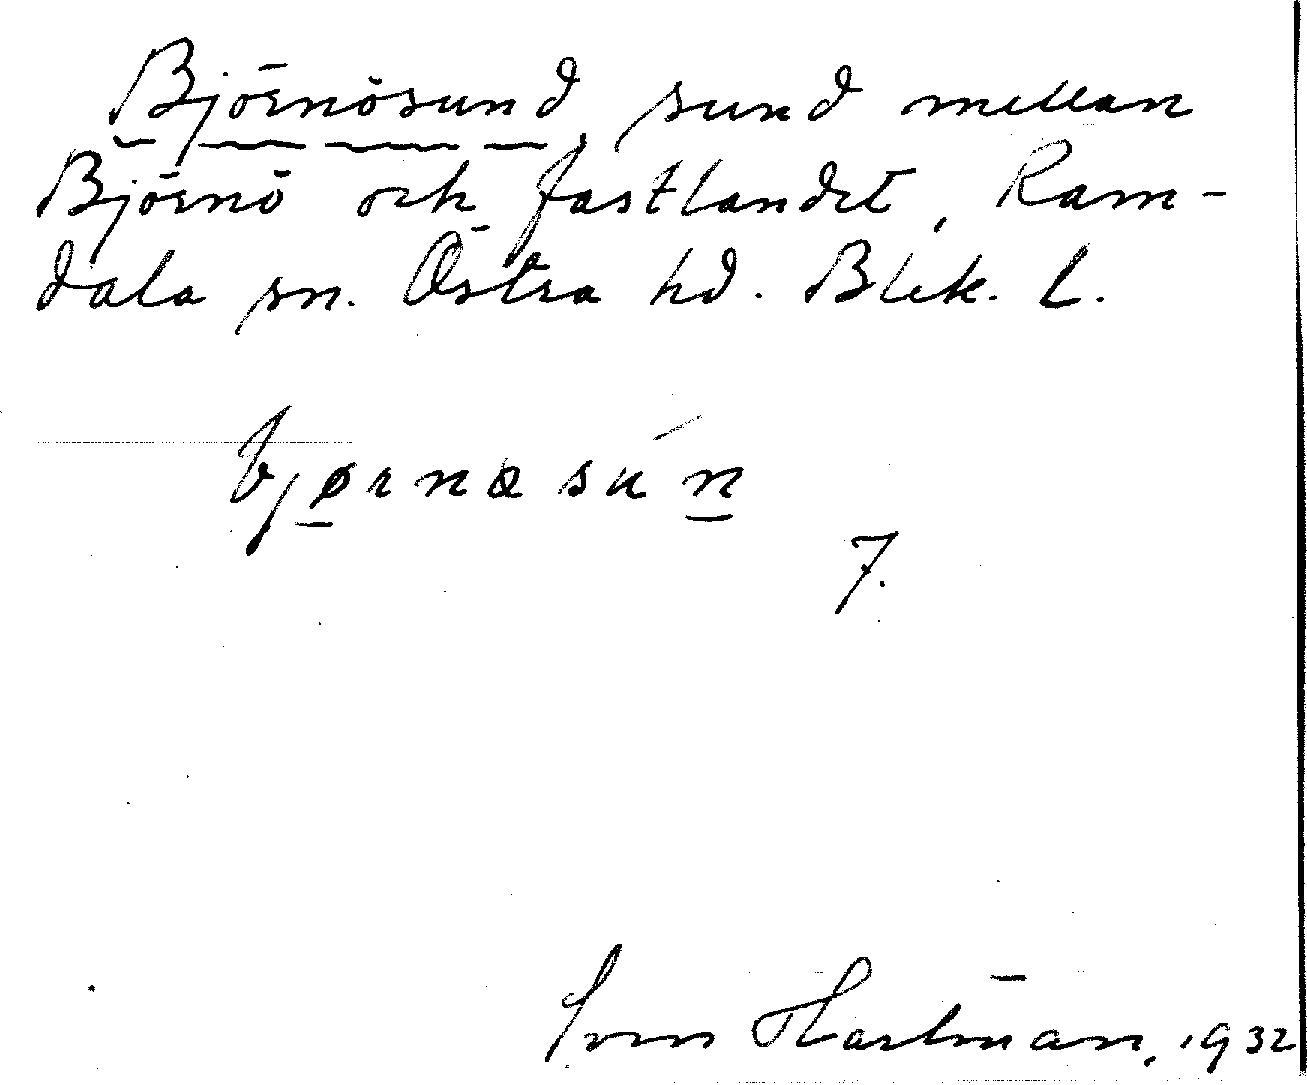 Björnösund, sund mellan
Björnö och fastlandet, Ram-
dala sn. Östra hd. Blek. L.
bjørnœsún
7.
Sven Hartman, 1932